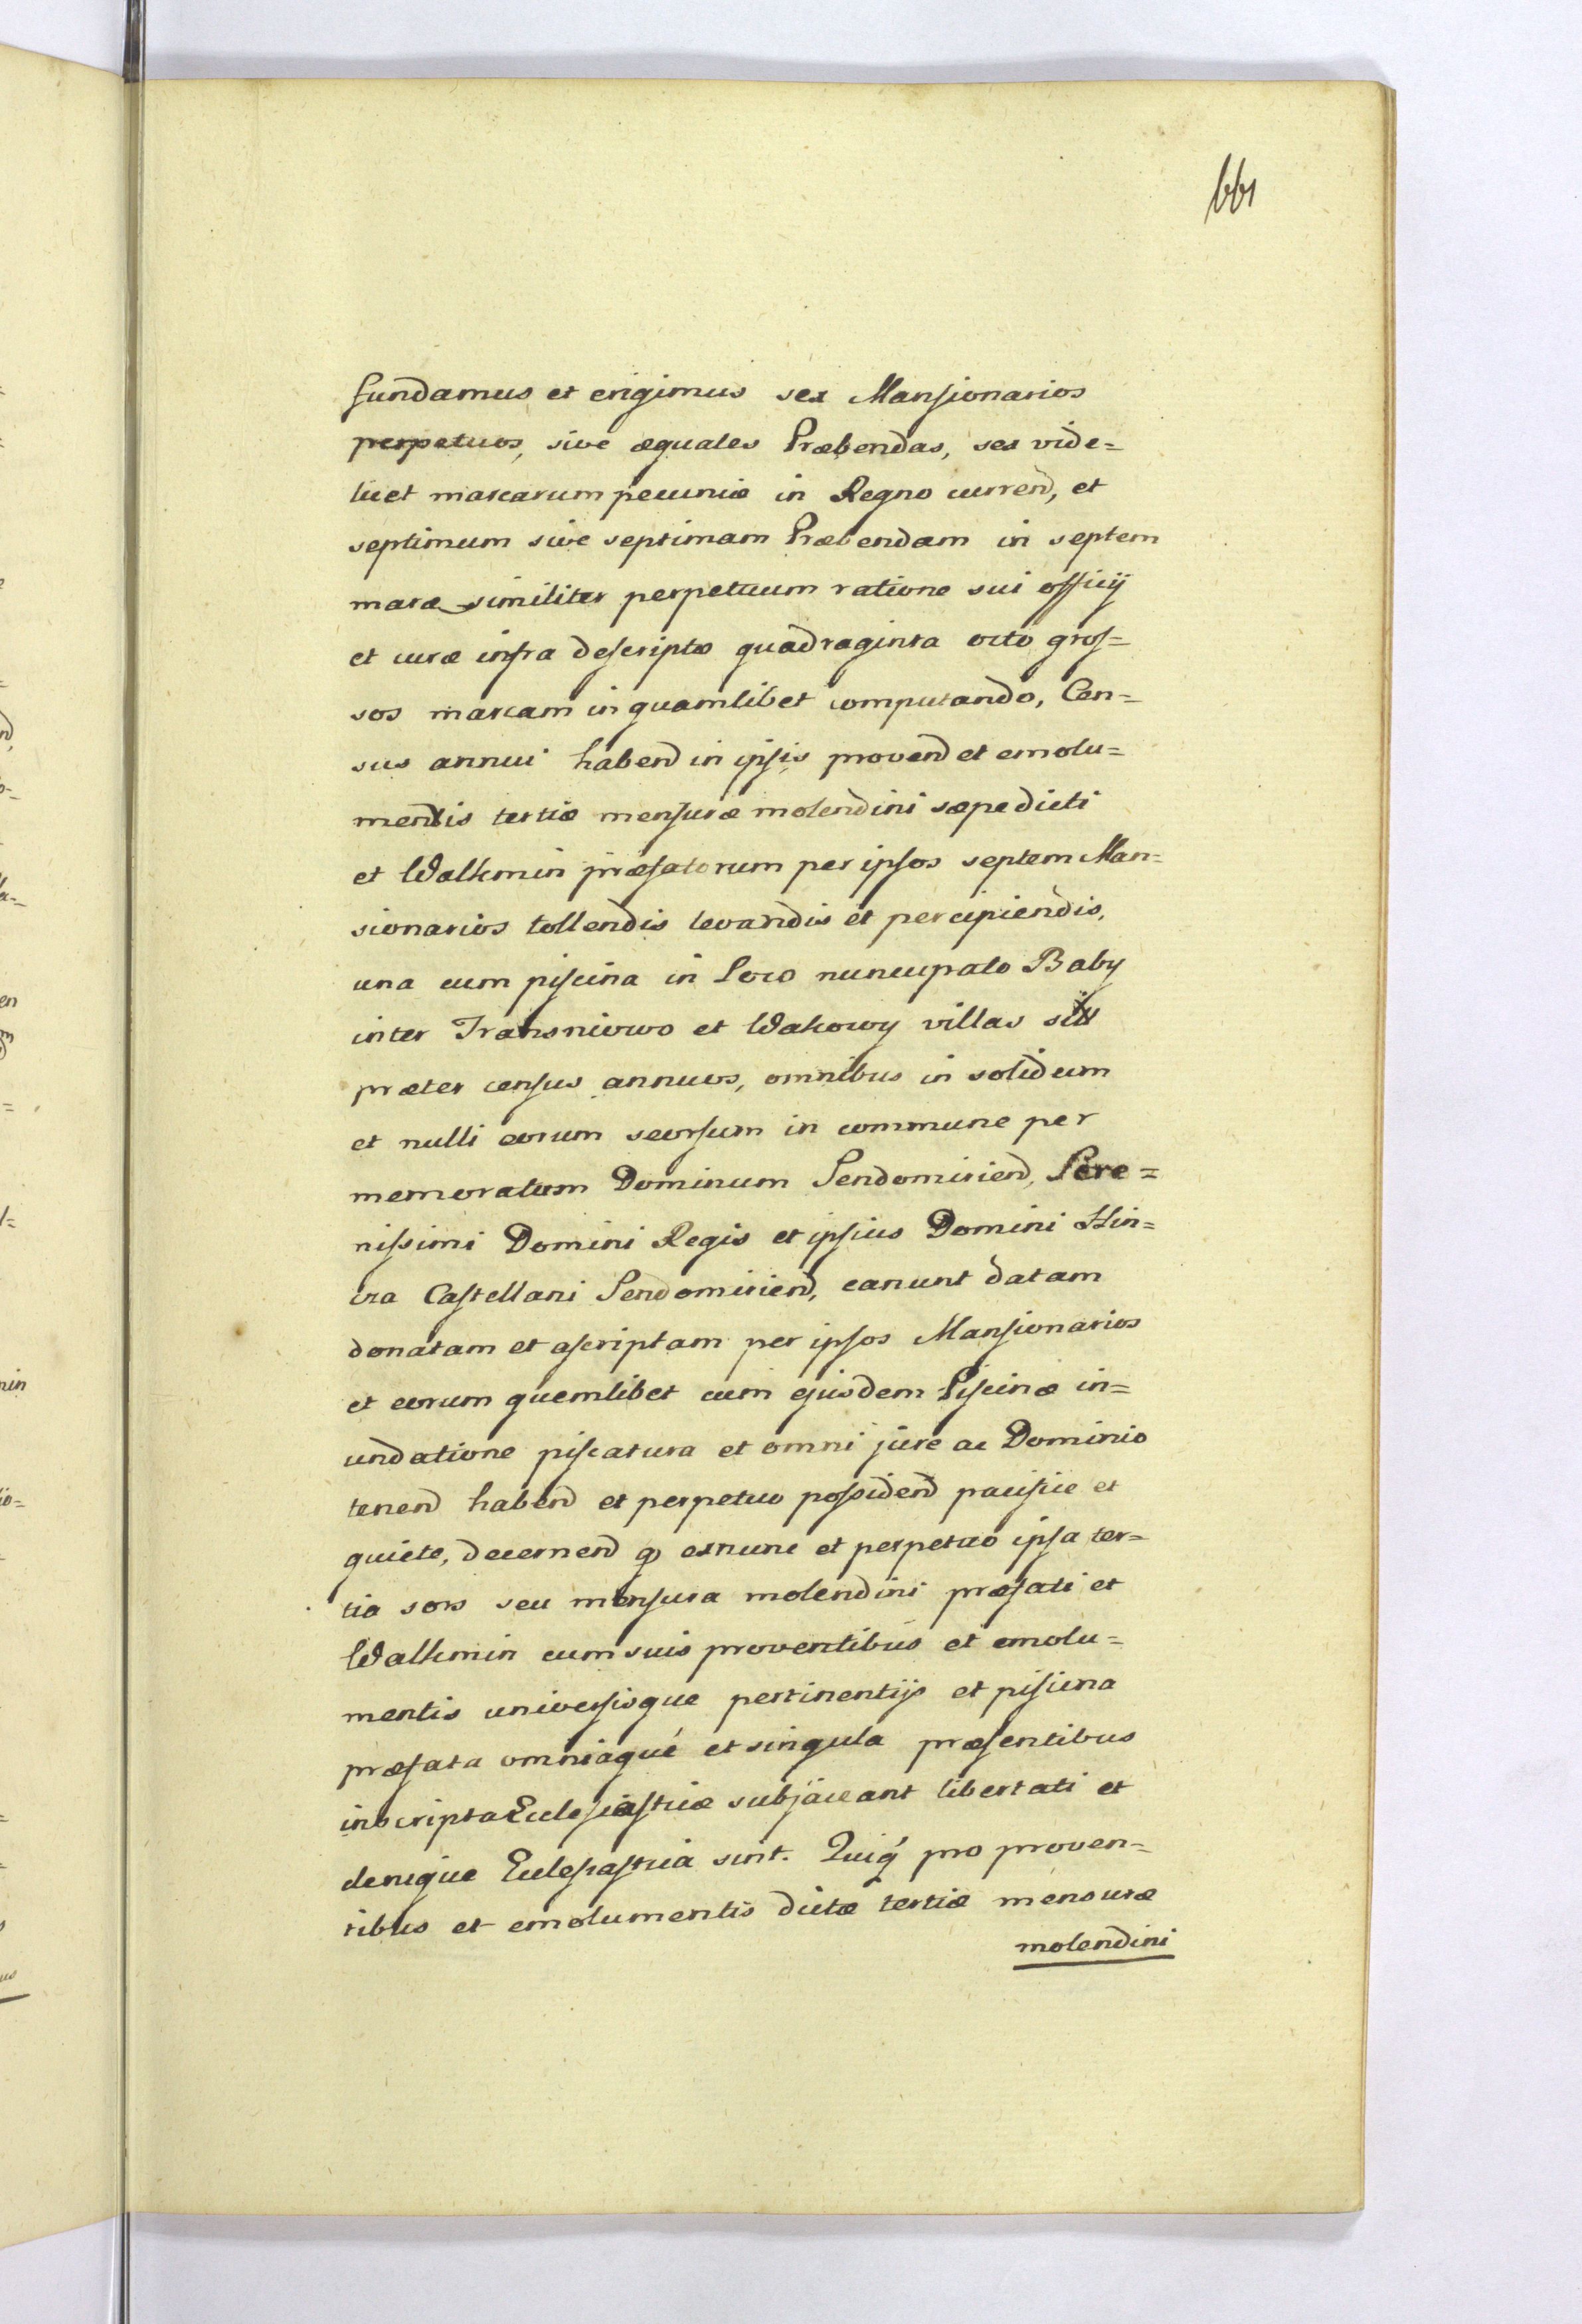 661
fundamus et erigimus sex Mansionarios
perpetuos, sive æquales Præbendas, sex vide=
licet marcarum pecuniæ in Regno currend, et
septimum sive septimam Præbendam in septem
marc similiter perpetuum ratione sui officÿ
et curæ infra descriptæ quadraginta octo gros=
sos marcam in quamlibet computando, Cen=
sus annui habend in ipsis provend et emolu=
mentis tertiæ mensuræ molendini sæpedicti
et Walkmin præfatorum per ipsos septem Man=
sionarios tollendis levandis et percipiendis,
una cum piscina in Loco nuncupato Baby
inter Transniowo et Wakowy villas
præter census annuos, omnibus in solidum
et nulli eorum seorsum in commune per
memoratum Dominum Sendomiriend, Sere=
nissimi Domini Regis et ipsius Domini Hin=
cza Castellani Sendomiriend, eanunt datam
donatam et ascriptam per ipsos Mansionarios
et eorum quemlibet cum ejusdem Piscinæ in=
undatione piscatura et omni jure ac Dominio
tenend habend et perpetuo possidend pacifice et
quiete, decernend q exnunc et perpetuo ipsa ter=
tia sors seu mensura molendini præfati et
Walkmin cum suis proventibus et emolu=
mentis universisque pertinentijs et piscina
præfata omniaqué et singula præsentibus
inscripta Ecclesiasticæ subjaceant libertati et
denique Ecclesiastica sint. Quiq́ pro proven=
tibus et emolumentis dictæ tertiæ mensuræ
molendini